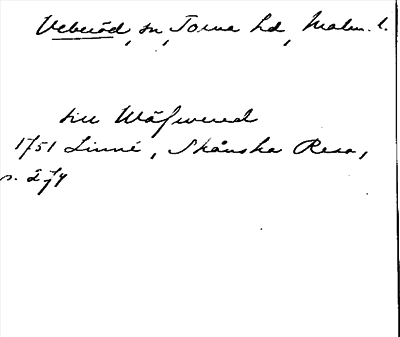 Veberöd, sn, Torna hd, Malm. l.
till Wäfwered
1751 Linné, Skånska Resa,
s. 279